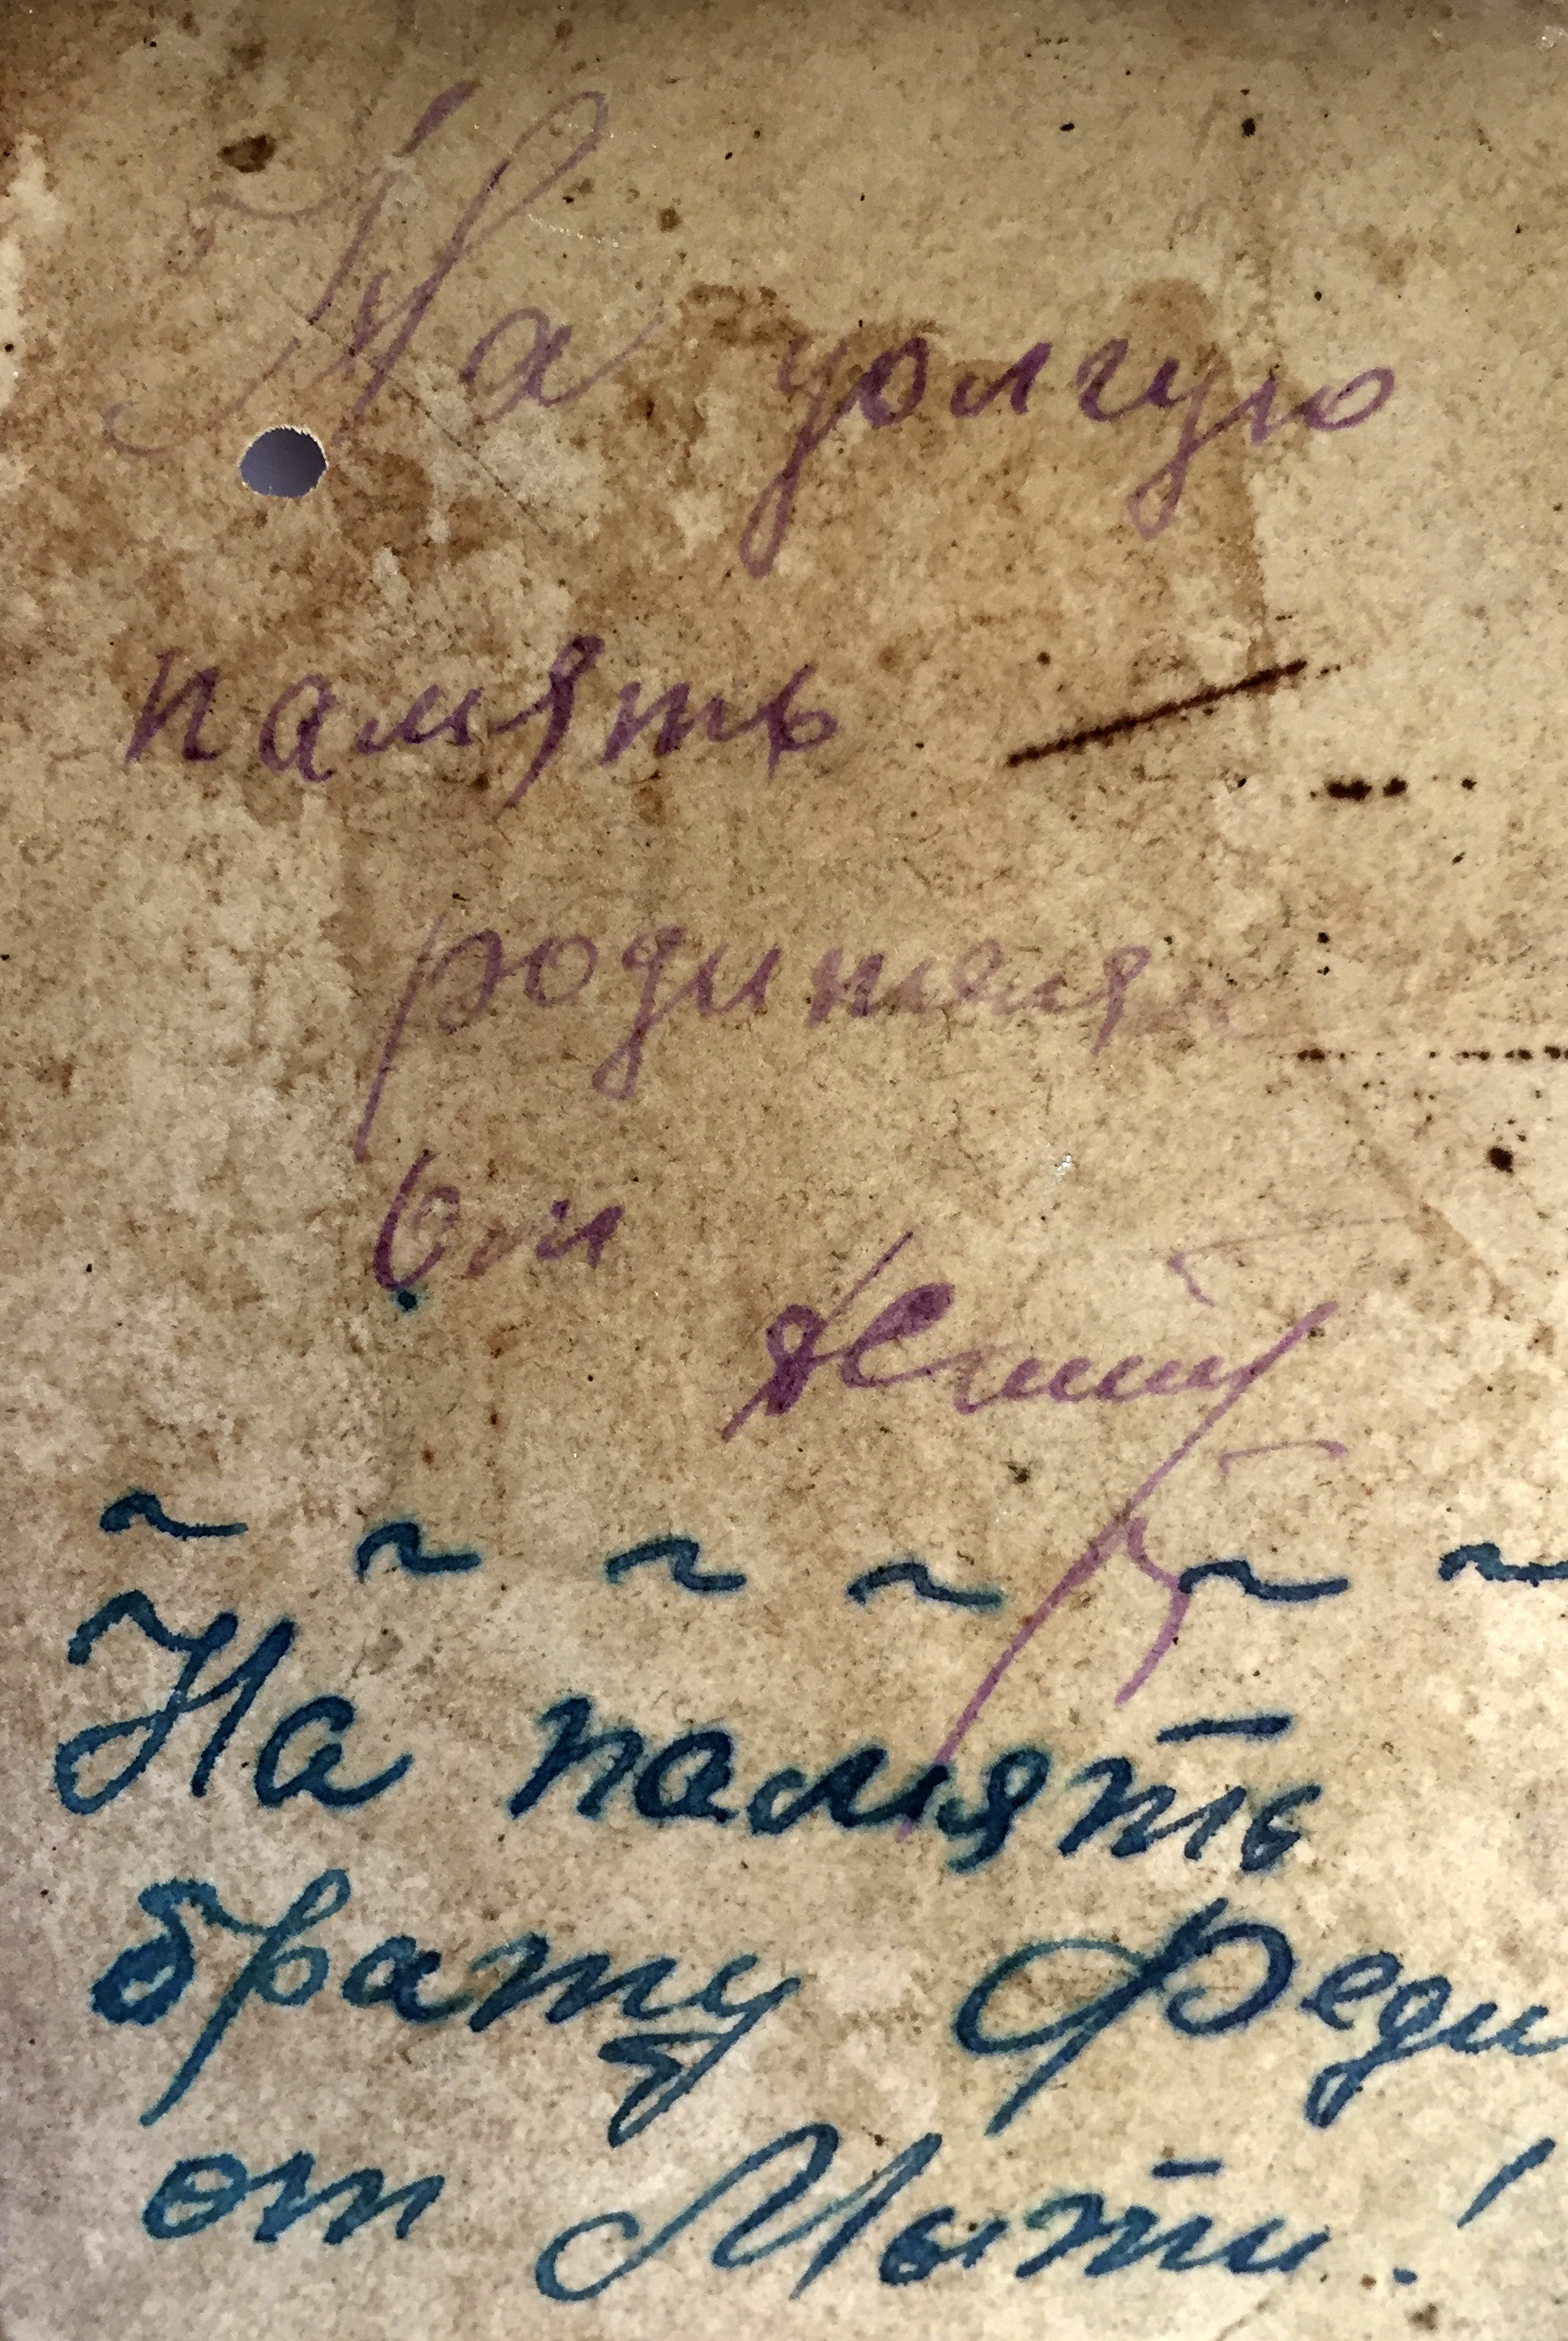 На долгую
память
родителям
от
На память
брату Феди
от Мыти!